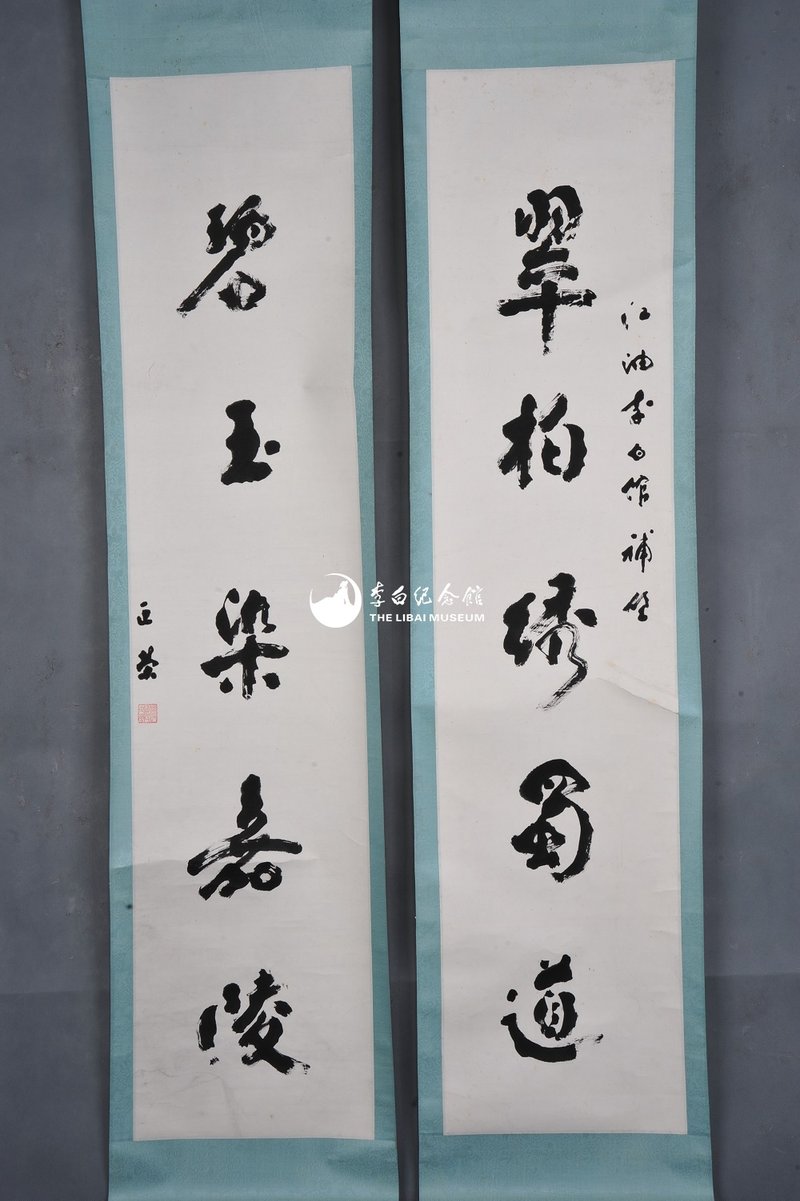 翠柏绣蜀道
江油李白馆补壁
碧玉染嘉陵
李白纪念馆
THE LIBAI MUSEUM